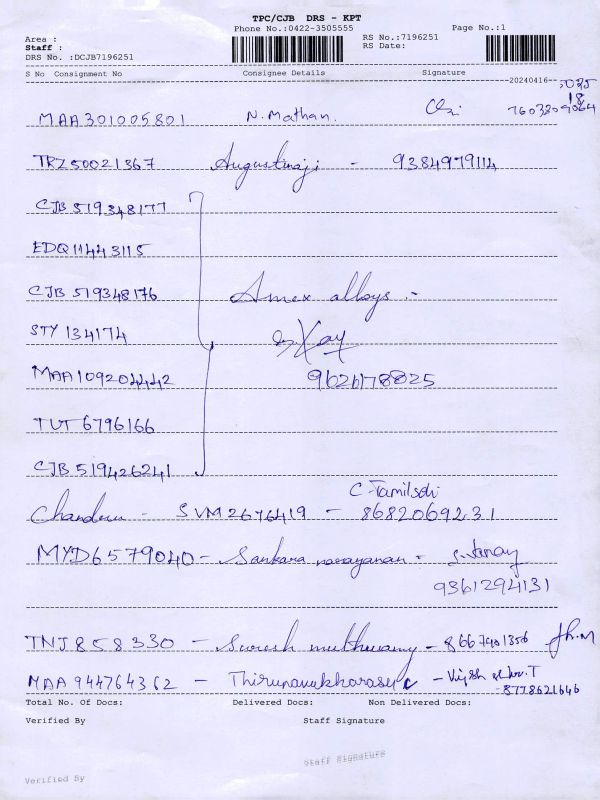 TPC/CJB DRS - KPT
Phone No.:0422-3505555
Page No.:1
Area :
Staff :
DRS No. :DCJB7196251
RS No.:7196251
RS Date:
S No Consignment No Consignee Details Signature
20240416
MAA301005801 N. Mathan.
TRZ50021367 Augustinaji - 9384979114
CJB 519348177
EDQ11443115
CJB 519348176 Amex alloys -
STY 134174
MAA109204442 9626178825
TUT 6796166
CJB 519426241
C. Tamilselvi
Chandru - SVM2676419 - 8682069231
MYD6579040 - Sankara narayanan -
9361294131
TNJ858330 - Suresh muthusamy - 8667401356
MAA944764362 - Thirunavukkarasu - 8778621646
Total No. Of Docs: Delivered Docs: Non Delivered Docs:
Verified By Staff Signature
Staff Signature
Verified By